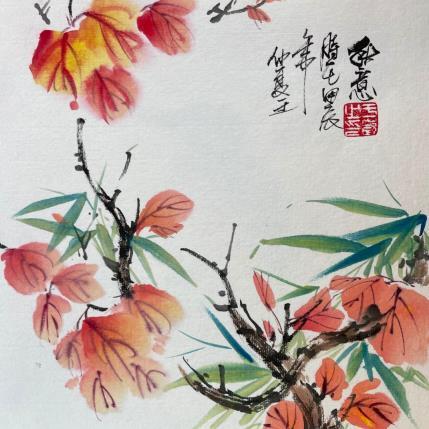 秋意
時在甲辰
年
仲夏王